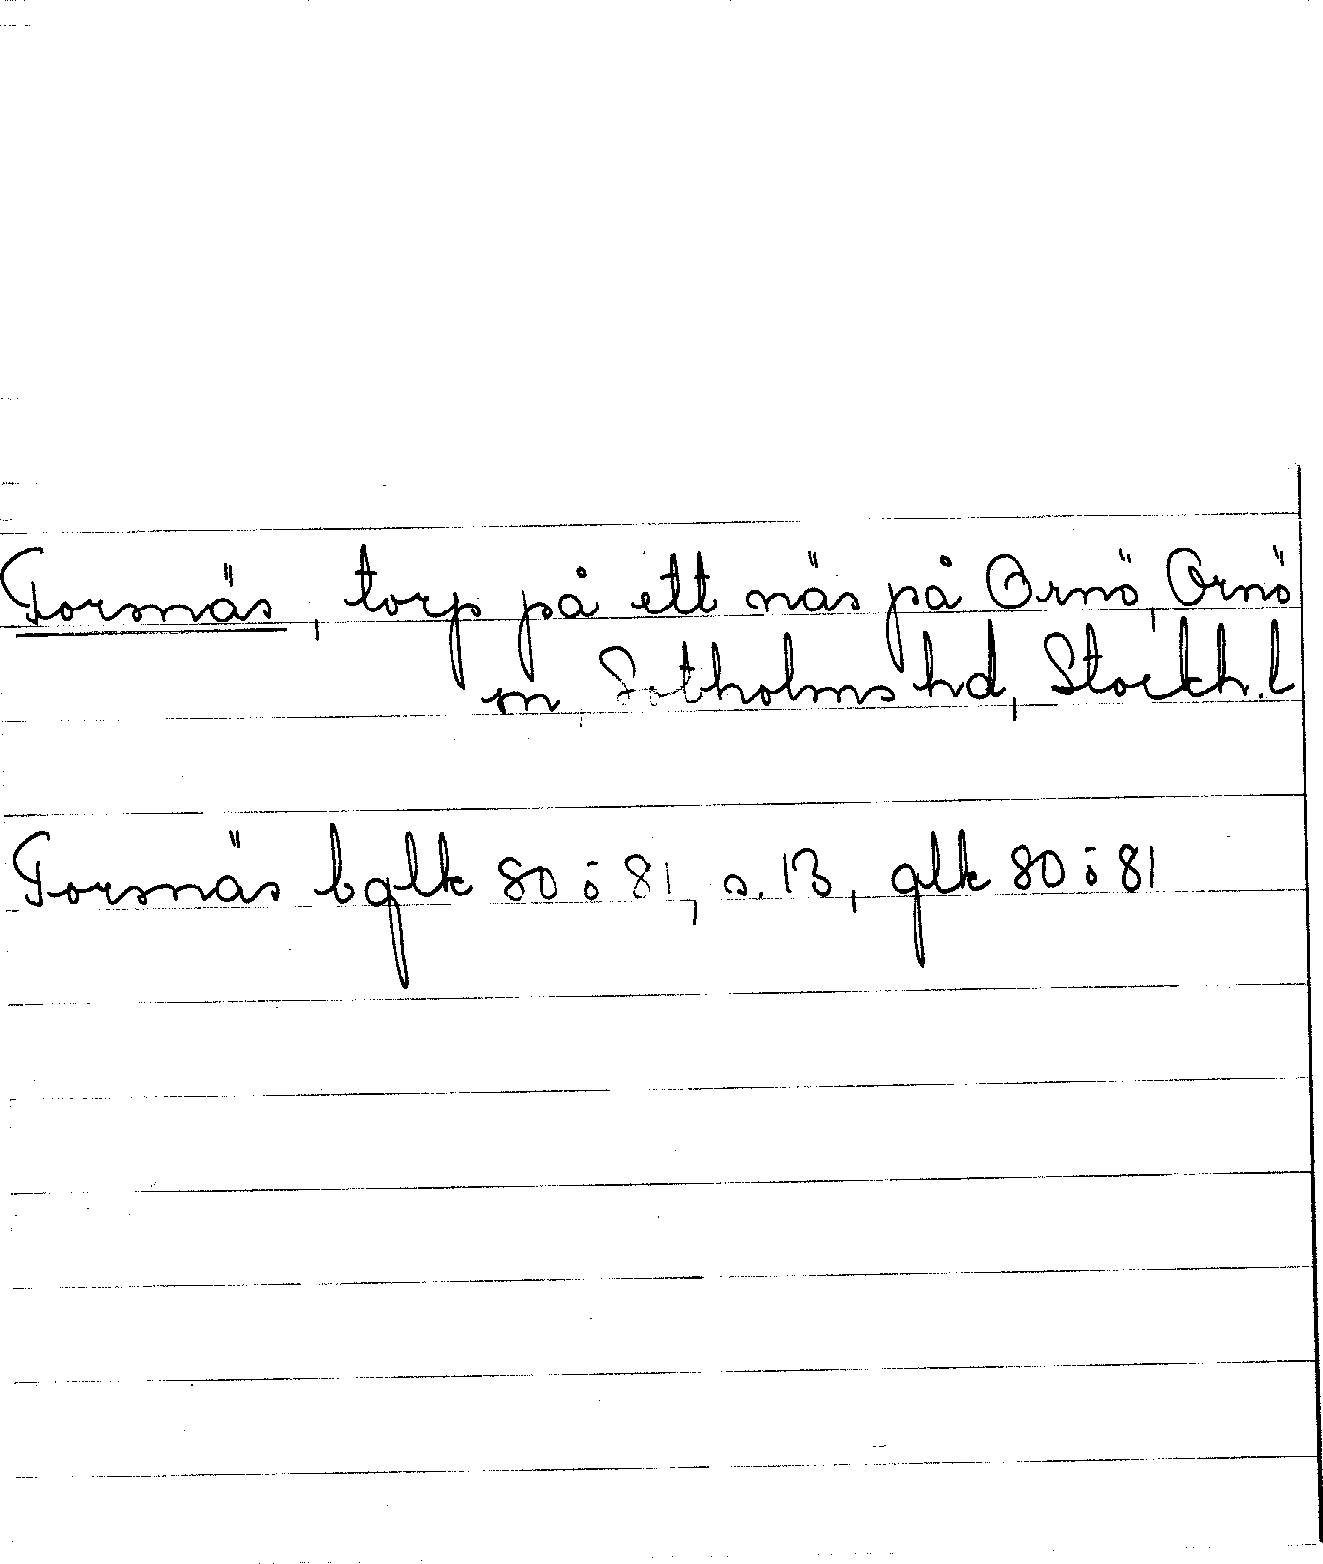 Torsnäs, torp på ett näs på Ornö, Ornö
sn, Sotholms hd, Stockh. l
Torsnäs bglk 80 ö 81, s. 13, glk 80 ö 81